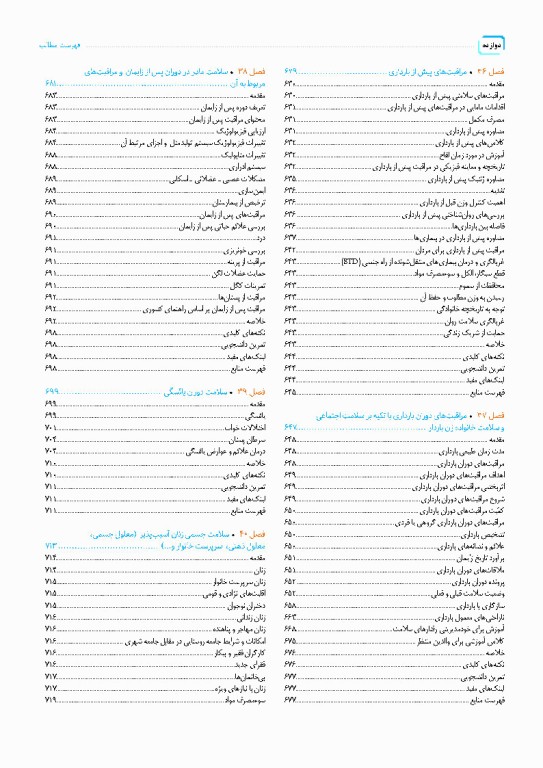 دوازده
فهرست مطالب
فصل ۳۶ • مراقبت‌های پیش از بارداری ۶۲۹
مقدمه ۶۳۰
مراقبت‌های سلامتی پیش از بارداری ۶۳۰
اقدامات مامایی در مراقبت‌های پیش از بارداری ۶۳۱
مصرف مکمل ۶۳۱
مشاوره پیش از بارداری ۶۳۱
کلاس‌های پیش از بارداری ۶۳۲
آموزش در مورد زمان لقاح ۶۳۲
تاریخچه و معاینه فیزیکی در مراقبت پیش از بارداری ۶۳۲
مشاوره ژنتیک پیش از بارداری ۶۳۵
تغذیه ۶۳۶
اهمیت کنترل وزن قبل از بارداری ۶۳۶
بررسی‌های روان‌شناختی پیش از بارداری ۶۳۶
فاصله بین بارداری‌ها ۶۳۶
مشاوره پیش از بارداری در بیماری‌ها ۶۳۷
مراقبت پیش از بارداری برای مردان ۶۴۲
غربالگری و درمان بیماری‌های منتقل‌شونده از راه جنسی (STD) ۶۴۳
قطع سیگار، الکل و سوءمصرف مواد ۶۴۳
محافظت از سموم ۶۴۳
رسیدن به وزن مطلوب و حفظ آن ۶۴۳
توجه به تاریخچه خانوادگی ۶۴۳
غربالگری سلامت روان ۶۴۳
حمایت از شریک زندگی ۶۴۳
خلاصه ۶۴۳
نکته‌های کلیدی ۶۴۴
تمرین دانشجویی ۶۴۴
لینک‌های مفید ۶۴۴
فهرست منابع ۶۴۵
فصل ۳۷ • مراقبت‌های دوران بارداری با تکیه بر سلامت اجتماعی
و سلامت خانواده زن باردار ۶۴۷
مقدمه ۶۴۸
مدت زمان طبیعی بارداری ۶۴۸
مراقبت‌های دوران بارداری ۶۴۸
اهداف مراقبت‌های دوران بارداری ۶۴۹
اثربخشی مراقبت‌های دوران بارداری ۶۴۹
شروع مراقبت‌های دوران بارداری ۶۴۹
کمیّت مراقبت‌های دوران بارداری ۶۵۰
مراقبت‌های دوران بارداری گروهی یا فردی ۶۵۰
تشخیص بارداری ۶۵۰
علائم و نشانه‌های بارداری ۶۵۰
برآورد تاریخ زایمان ۶۵۱
ملاقات‌های دوران بارداری ۶۵۱
پرونده دوران بارداری ۶۵۲
وضعیت سلامت قبلی و فعلی ۶۵۲
سازگاری با بارداری ۶۵۸
ناراحتی‌های معمول بارداری ۶۶۳
آموزش برای خودمدیریتی رفتارهای سلامت ۶۶۸
کلاس آموزشی برای والدین منتظر ۶۷۵
خلاصه ۶۷۶
نکته‌های کلیدی ۶۷۶
تمرین دانشجویی ۶۷۷
لینک‌های مفید ۶۷۷
فهرست منابع ۶۷۷
فصل ۳۸ • سلامت مادر در دوران پس از زایمان و مراقبت‌های
مربوط به آن ۶۸۱
مقدمه ۶۸۳
تعریف دوره پس از زایمان ۶۸۳
محتوای مراقبت پس از زایمان ۶۸۳
ارزیابی فیزیولوژیک ۶۸۴
تغییرات فیزیولوژیک سیستم تولیدمثل و اجزای مرتبط آن ۶۸۴
تغییرات متابولیک ۶۸۸
سیستم ادراری ۶۸۸
مشکلات عصبی ـ عضلانی ـ اسکلتی ۶۸۹
ایمن‌سازی ۶۸۹
ترخیص از بیمارستان ۶۸۹
مراقبت‌های پس از زایمان ۶۹۰
بررسی علائم حیاتی پس از زایمان ۶۹۰
درد ۶۹۱
بررسی خونریزی ۶۹۱
مراقبت از پرینه ۶۹۱
حمایت عضلات لگن ۶۹۱
تمرینات کگل ۶۹۱
مراقبت از پستان‌ها ۶۹۲
مراقبت پس از زایمان بر اساس راهنمای کشوری ۶۹۲
خلاصه ۶۹۲
نکته‌های کلیدی ۶۹۸
تمرین دانشجویی ۶۹۸
لینک‌های مفید ۶۹۸
فهرست منابع ۶۹۸
فصل ۳۹ • سلامت دوران یائسگی ۶۹۹
مقدمه ۶۹۹
یائسگی ۶۹۹
اختلالات خواب ۷۰۱
سرطان پستان ۷۰۴
درمان علائم و عوارض یائسگی ۷۰۴
خلاصه ۷۱۰
نکته‌های کلیدی ۷۱۰
تمرین دانشجویی ۷۱۱
لینک‌های مفید ۷۱۱
فهرست منابع ۷۱۱
فصل ۴۰ • سلامت جسمی زنان آسیب‌پذیر (معلول جسمی،
معلول ذهنی، سرپرست خانوار و...) ۷۱۳
مقدمه ۷۱۴
زنان ۷۱۴
زنان سرپرست خانوار ۷۱۵
اقلیت‌های نژادی و قومی ۷۱۵
دختران نوجوان ۷۱۵
زنان زندانی ۷۱۶
زنان مهاجر و پناهنده ۷۱۶
امکانات و شرایط جامعه روستایی در مقابل جامعه شهری ۷۱۶
کارگران فقیر و بیکار ۷۱۶
فقرای جدید ۷۱۶
بی‌خانمان‌ها ۷۱۷
زنان با نیازهای ویژه ۷۱۷
سوءمصرف مواد ۷۱۹